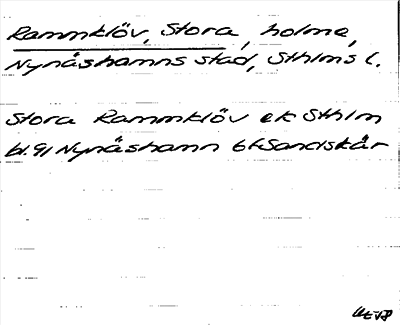 Rammklöv, Stora, holme,
Nynäshamns stad, Sthlms l.
Stora Rammklöv ek Sthlm
bl 91 Nynäshamn 6f Sandskär